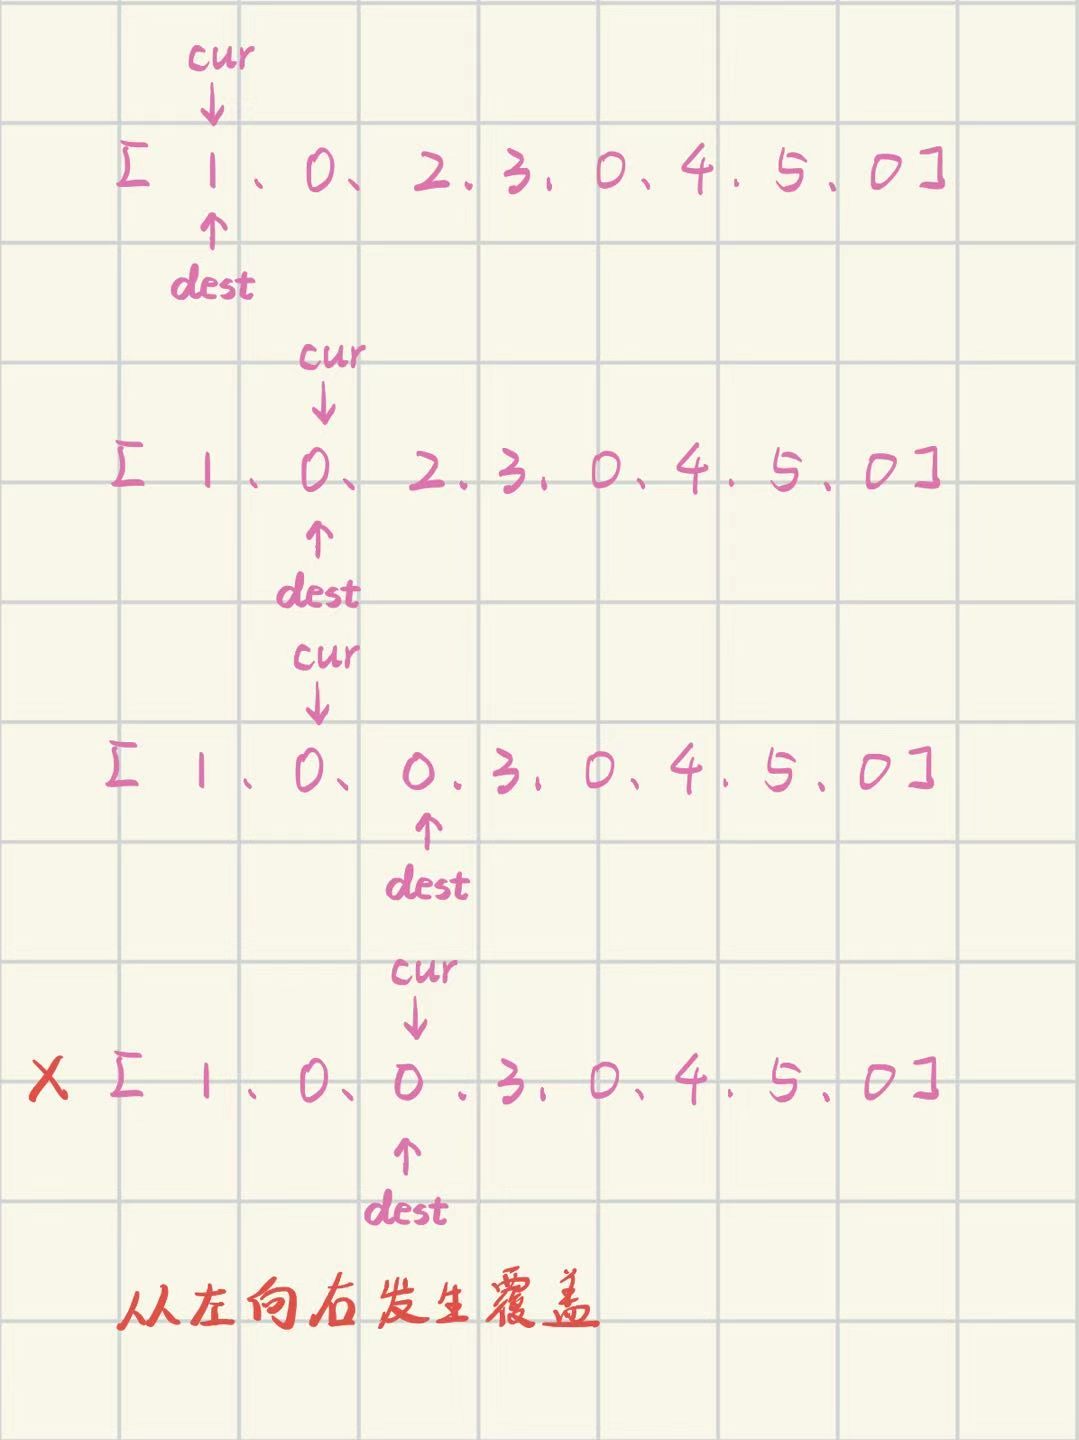 cur
↓
[ 1、0、2.3、0、4.5、0]
↑
dest
cur
↓
[ 1、0、2.3、0、4.5、0]
↑
dest
cur
↓
[ 1、0、0.3、0、4.5、0]
↑
dest
cur
↓
X [ 1、0、0.3、0、4.5、0]
↑
dest
从左向右发生覆盖